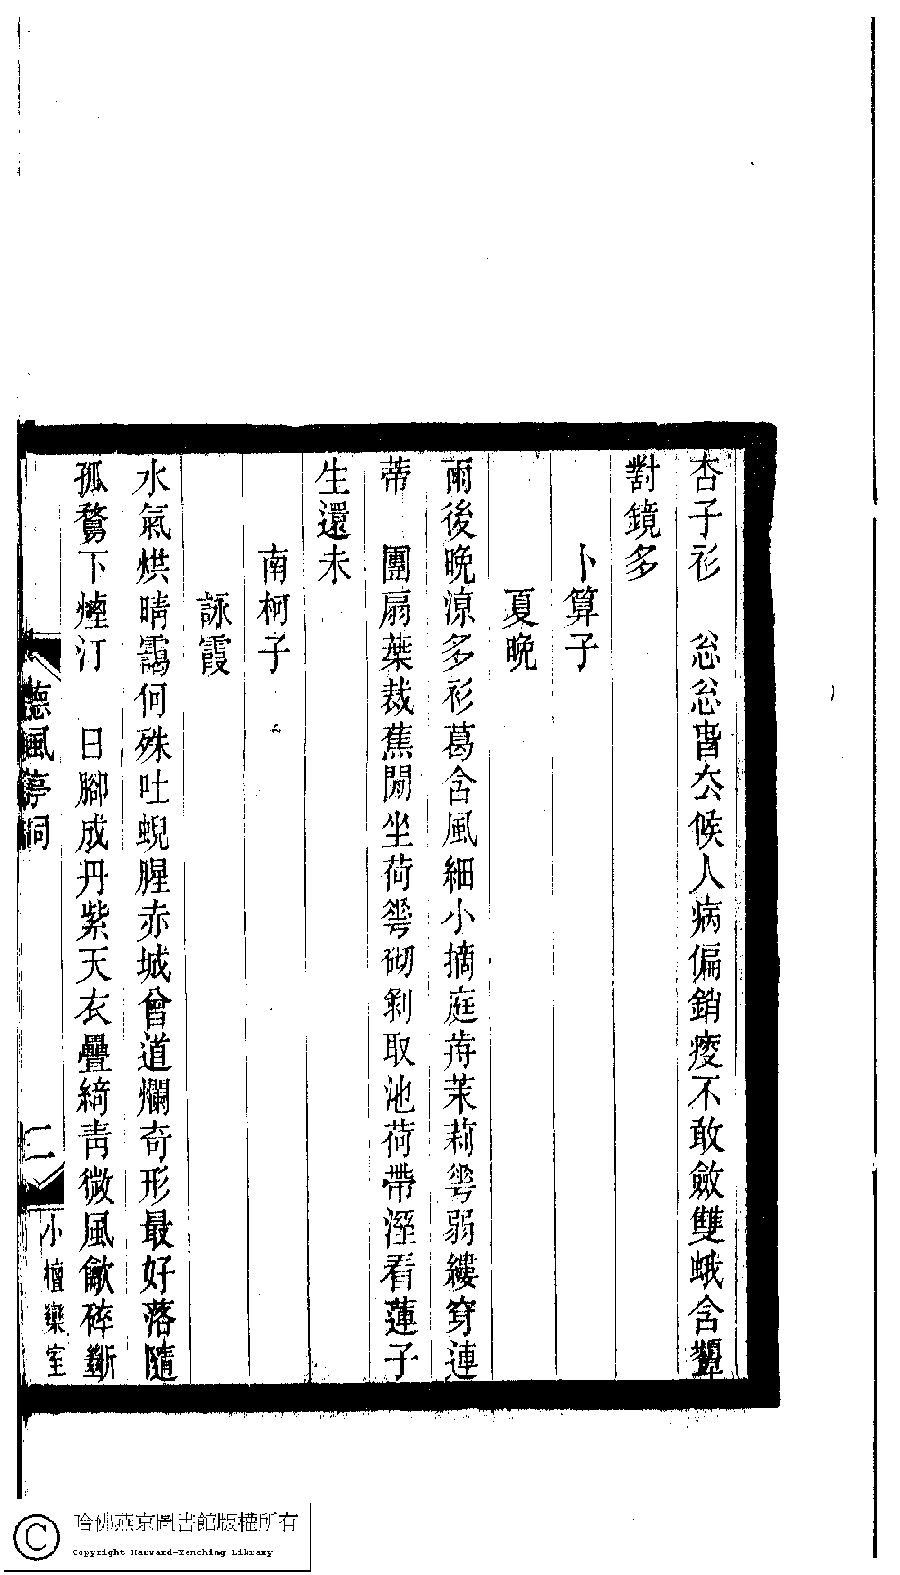 杏子衫　忩忩暓厺候人病偏銷瘦不敢斂雙蛾含顰
對鏡多
卜算子
夏晚
雨後晚涼多衫葛含風細小摘庭歬茉莉等弱縷穿連
蒂　團扇葉裁蕉閒坐荷等砌剩取池荷帶溼看蓮子
生還未
南柯子
詠霞
水氣烘晴靄何殊吐蜺腥赤城曾道爛奇形最好落隨
孤鶩下煙汀　日腳成丹紫天衣疊綺靑微風歛碎斷
聽風亭詞
二
小檀欒室
哈佛燕京圖書館版權所有
Copyright Harvard-Yenching Library